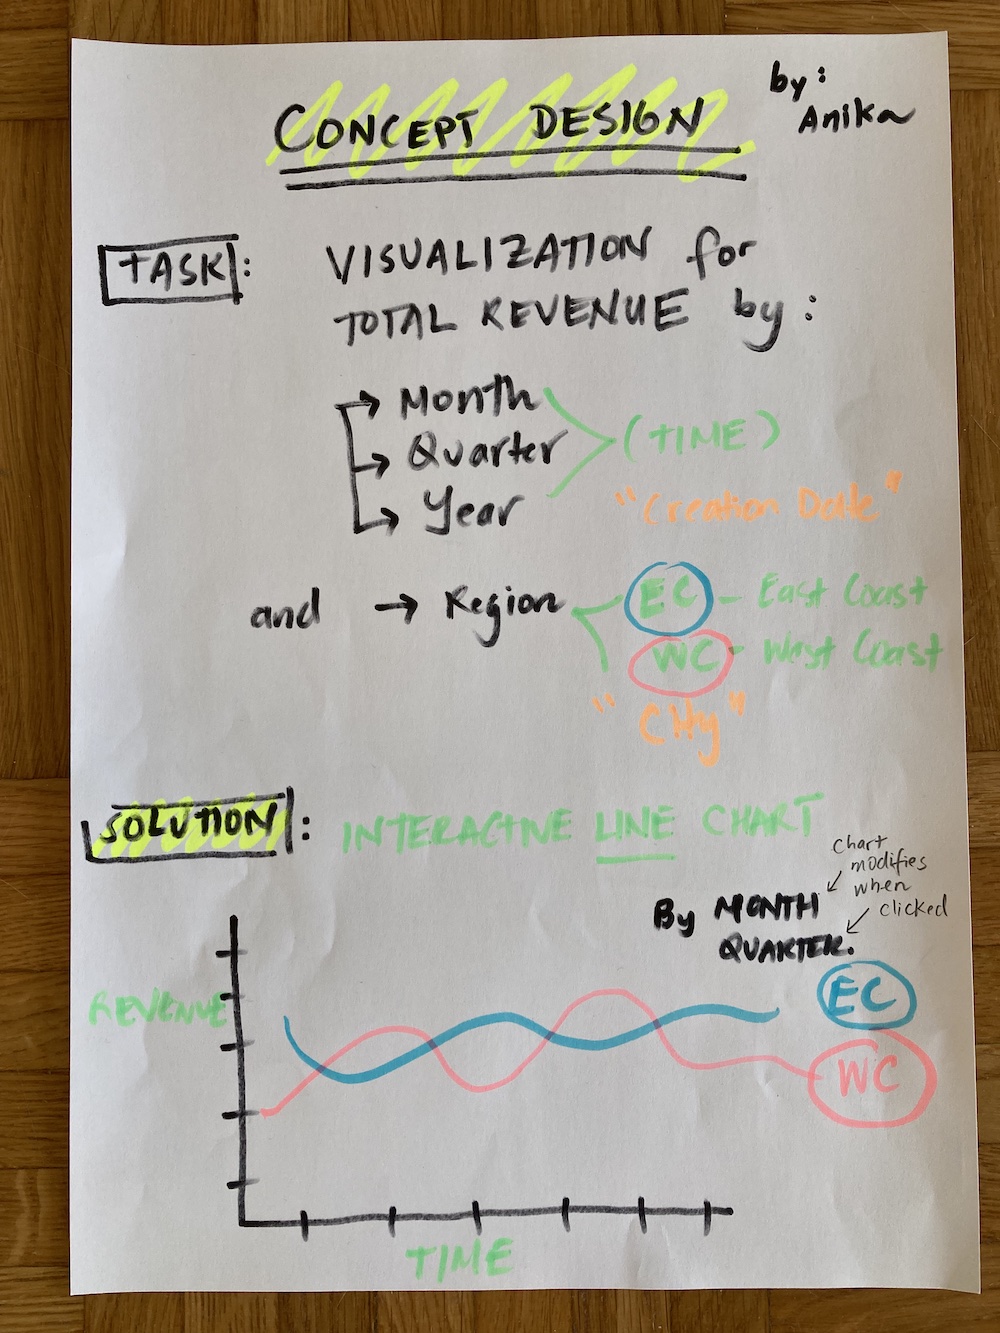 CONCEPT DESIGN
by:
Anika
TASK: VISUALIZATION for
TOTAL REVENUE by:
→ Month
→ Quarter
(TIME)
→ Year
"Creation Date"
and → Region
EC - East Coast
WC - West Coast
"City"
SOLUTION: INTERACTIVE LINE CHART
chart
modifies
when
clicked
By MONTH
QUARTER.
REVENUE
EC
WC
TIME